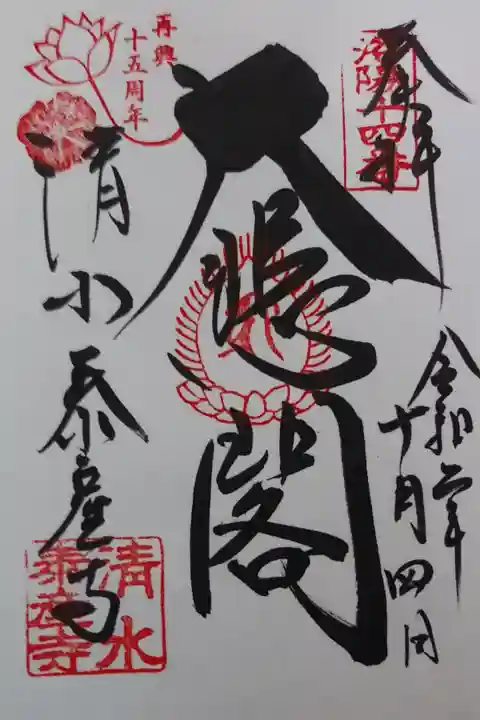 奉拝
洛陽十四番
令和二年
十月四日
大悲閣
再興
十五周年
清水泰産寺
清水
泰産寺